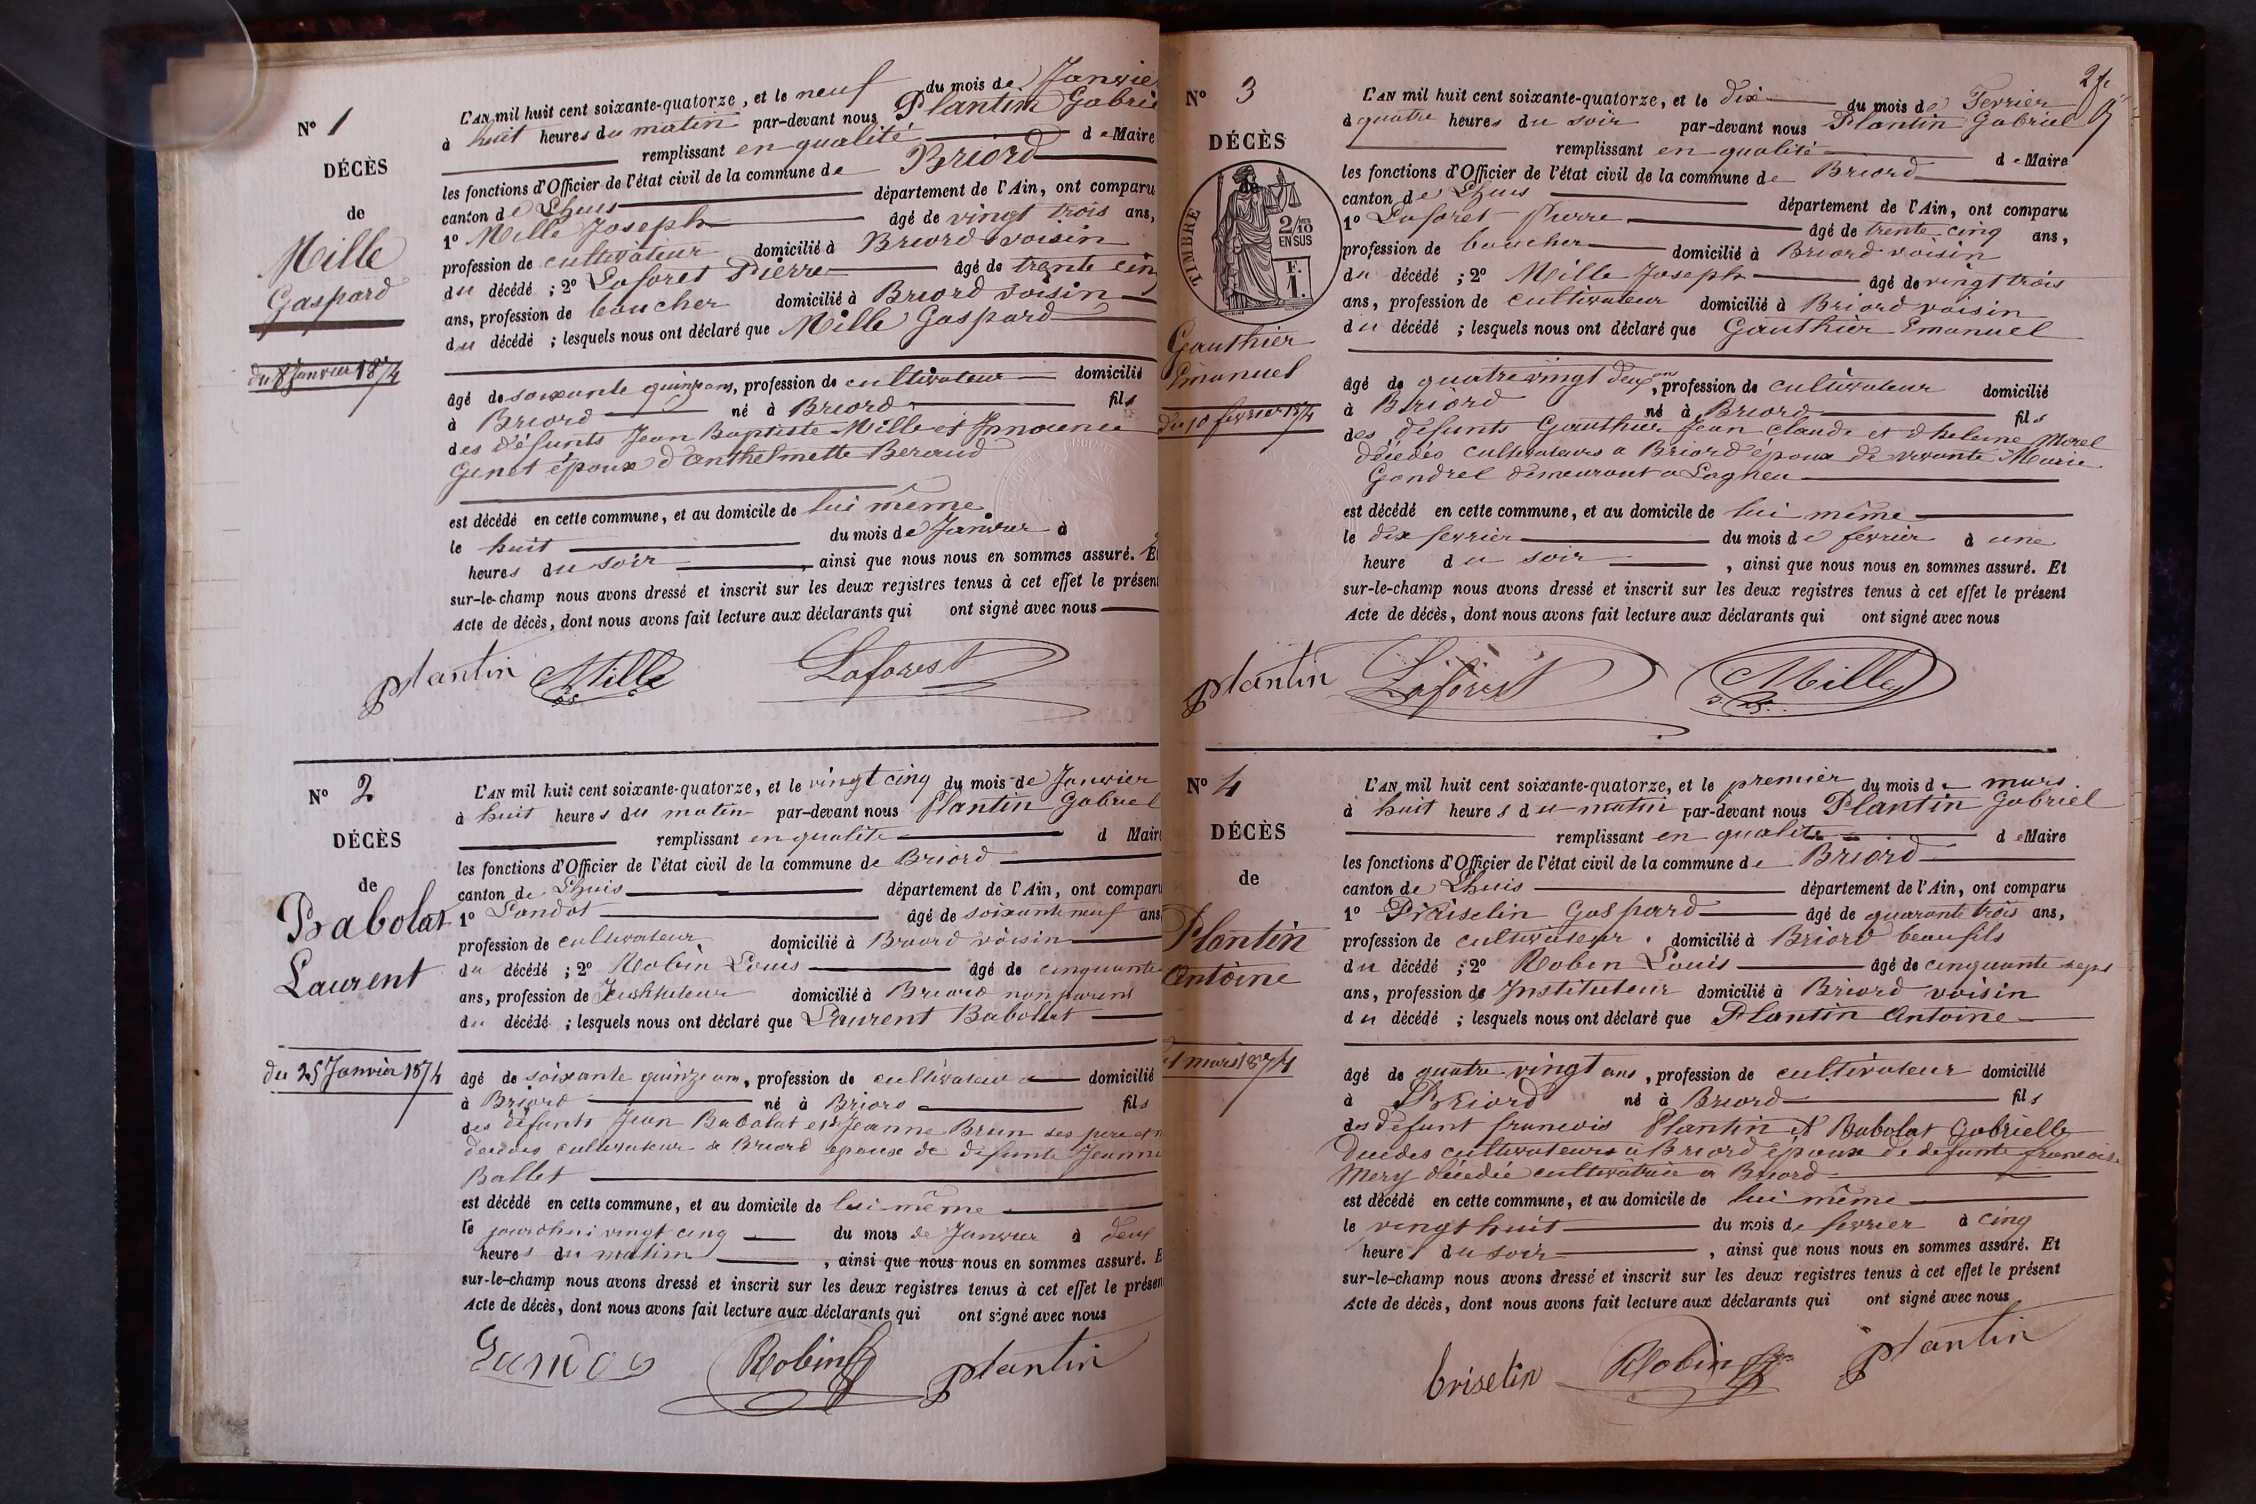 N° 1
DÉCÈS
de
Mille
Gaspard
du 8 Janvier 1874
L'AN mil huit cent soixante-quatorze, et le neuf du mois de Janvie
à huit heures du matin par-devant nous Plantin Gabrie
remplissant en qualité de Maire
les fonctions d'Officier de l'état civil de la commune de Briord
canton de Lhuis département de l'Ain, ont comparu
1° Mille Joseph âgé de vingt trois ans,
profession de cultivateur domicilié à Briord voisin
du décédé ; 2° Laforet Pierre âgé de trente cin
ans, profession de boucher domicilié à Briord voisin
du décédé ; lesquels nous ont déclaré que Mille Gaspard
âgé de soixante quinze ans, profession de cultivateur domicilié
à Briord né à Briord fils
des défunts Jean Baptiste Mille et Innocence
Genet époux d'Anthelmette Beraud
est décédé en cette commune, et au domicile de lui même
le huit du mois de Janvier à
heures du soir, ainsi que nous nous en sommes assuré. Et
sur-le-champ nous avons dressé et inscrit sur les deux registres tenus à cet effet le présent
Acte de décès, dont nous avons fait lecture aux déclarants qui ont signé avec nous
plantin Mille Laforest
N° 2
DÉCÈS
de
Babolat
Laurent
du 25 Janvier 1874
L'AN mil huit cent soixante-quatorze, et le vingt cinq du mois de Janvier
à huit heures du matin par-devant nous Plantin Gabriel
remplissant en qualité d Maire
les fonctions d'Officier de l'état civil de la commune de Briord
canton de Lhuis département de l'Ain, ont comparu
1° Landot âgé de soixante neuf ans
profession de cultivateur domicilié à Briord voisin
du décédé ; 2° Robin Louis âgé de cinquante
ans, profession de Instituteur domicilié à Briord non parent
du décédé ; lesquels nous ont déclaré que Laurent Babolat
âgé de soixante quinze ans, profession de cultivateur domicilié
à Briord né à Briord fils
des défunts Jean Babolat et Jeanne Brun ses pere et m
décédés cultivateur à Briord époux de défunte Jeanne
Ballet
est décédé en cette commune, et au domicile de lui même
le jourdhui vingt cinq du mois de Janvier à deux
heures du matin, ainsi que nous nous en sommes assuré. E
sur-le-champ nous avons dressé et inscrit sur les deux registres tenus à cet effet le présen
Acte de décès, dont nous avons fait lecture aux déclarants qui ont signé avec nous
Robin plantin
N° 3
DÉCÈS
TIMBRE
2/10
EN SUS
F.
1.
Gauthier
Emanuel
du 10 fevrier 1874
L'AN mil huit cent soixante-quatorze, et le dix du mois de Fevrier
à quatre heures du soir par-devant nous Plantin Gabriel
remplissant en qualité de Maire
les fonctions d'Officier de l'état civil de la commune de Briord
canton de Lhuis département de l'Ain, ont comparu
1° Laforet Pierre âgé de trente cinq ans,
profession de boucher domicilié à Briord voisin
du décédé ; 2° Mille Joseph âgé de vingt trois
ans, profession de cultivateur domicilié à Briord voisin
du décédé ; lesquels nous ont déclaré que Gauthier Emanuel
âgé de quatrevingt deux ans, profession de cultivateur domicilié
à Briord né à Briord fils
des défunts Gauthier Jean Claude et d'helene Morel
décédés cultivateurs a Briord époux de vivante Marie
Gondrel demeurant a Lagneu
est décédé en cette commune, et au domicile de lui même
le dix fevrier du mois de fevrier à une
heure du soir, ainsi que nous nous en sommes assuré. Et
sur-le-champ nous avons dressé et inscrit sur les deux registres tenus à cet effet le présent
Acte de décès, dont nous avons fait lecture aux déclarants qui ont signé avec nous
plantin Laforest Mille
N° 4
DÉCÈS
de
Plantin
Antoine
1 mars 1874
L'AN mil huit cent soixante-quatorze, et le premier du mois de mars
à huit heures du matin par-devant nous Plantin Gabriel
remplissant en qualité de Maire
les fonctions d'Officier de l'état civil de la commune de Briord
canton de Lhuis département de l'Ain, ont comparu
1° Briselin Gaspard âgé de quarante trois ans,
profession de cultivateur domicilié à Briord beaufils
du décédé ; 2° Robin Louis âgé de cinquante sept
ans, profession de Instituteur domicilié à Briord voisin
du décédé ; lesquels nous ont déclaré que Plantin Antoine
âgé de quatre vingt ans, profession de cultivateur domicilié
à Briord né à Briord fils
des defunt francois Plantin et Babolat Gabrielle
décédés cultivateurs à Briord époux de défunte francoise
Mery décédée cultivatrice a Briord
est décédé en cette commune, et au domicile de lui même
le vingt huit du mois de fevrier à cinq
heures du soir, ainsi que nous nous en sommes assuré. Et
sur-le-champ nous avons dressé et inscrit sur les deux registres tenus à cet effet le présent
Acte de décès, dont nous avons fait lecture aux déclarants qui ont signé avec nous
briselin Robin plantin